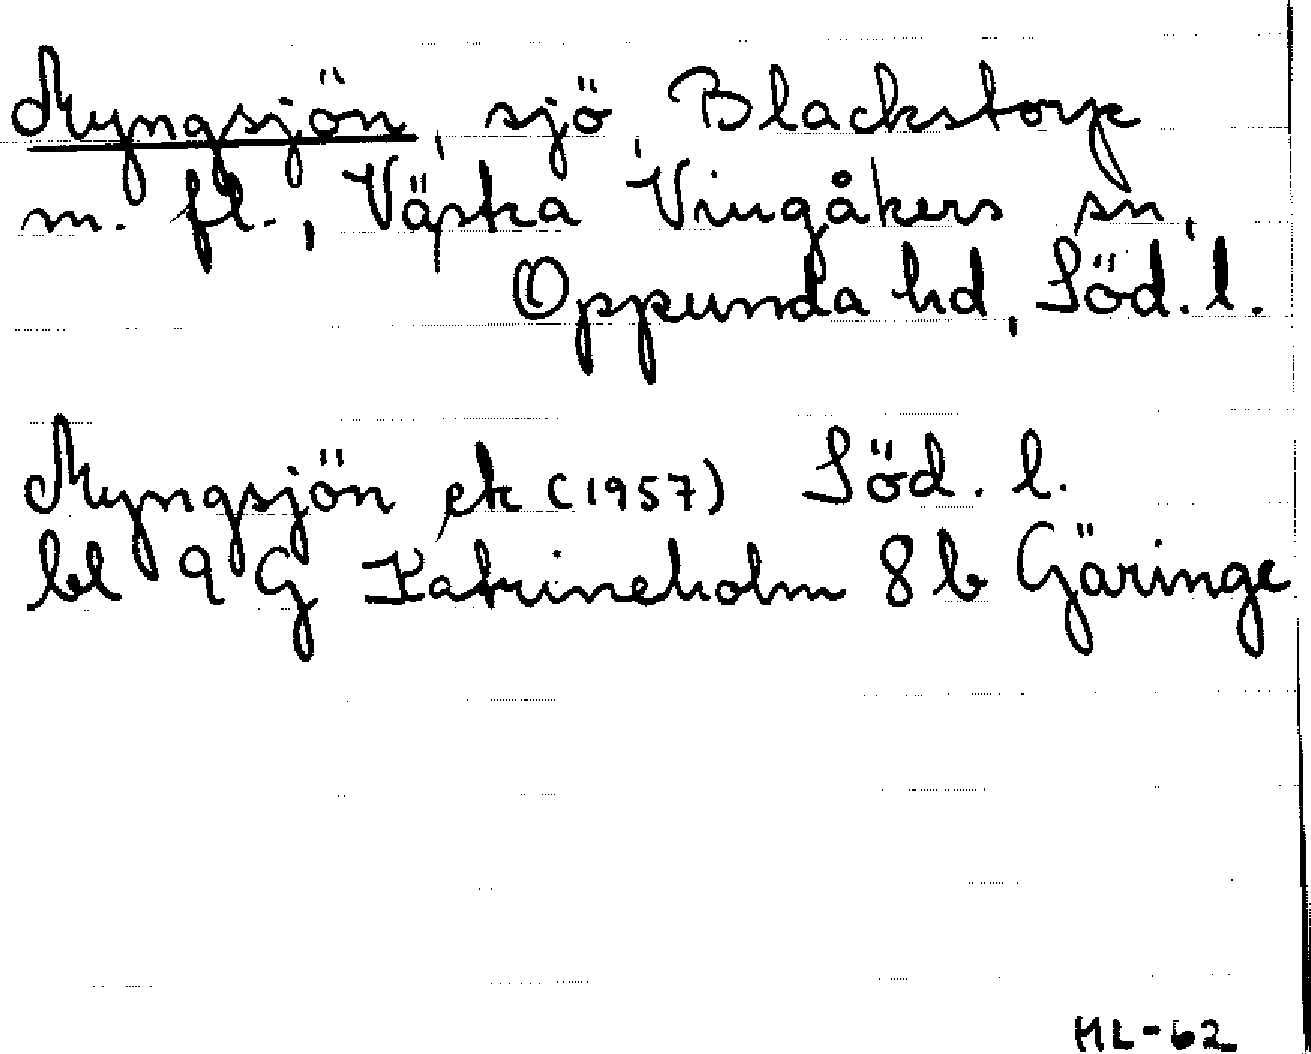 Myngsjön, sjö, Blackstorp
m. fl., Västra Vingåkers sn,
Oppunda hd, Söd. l.
Myngsjön ek (1957) Söd. l.
bl 9 G Katrineholm 8 b Gäringe
ML-62